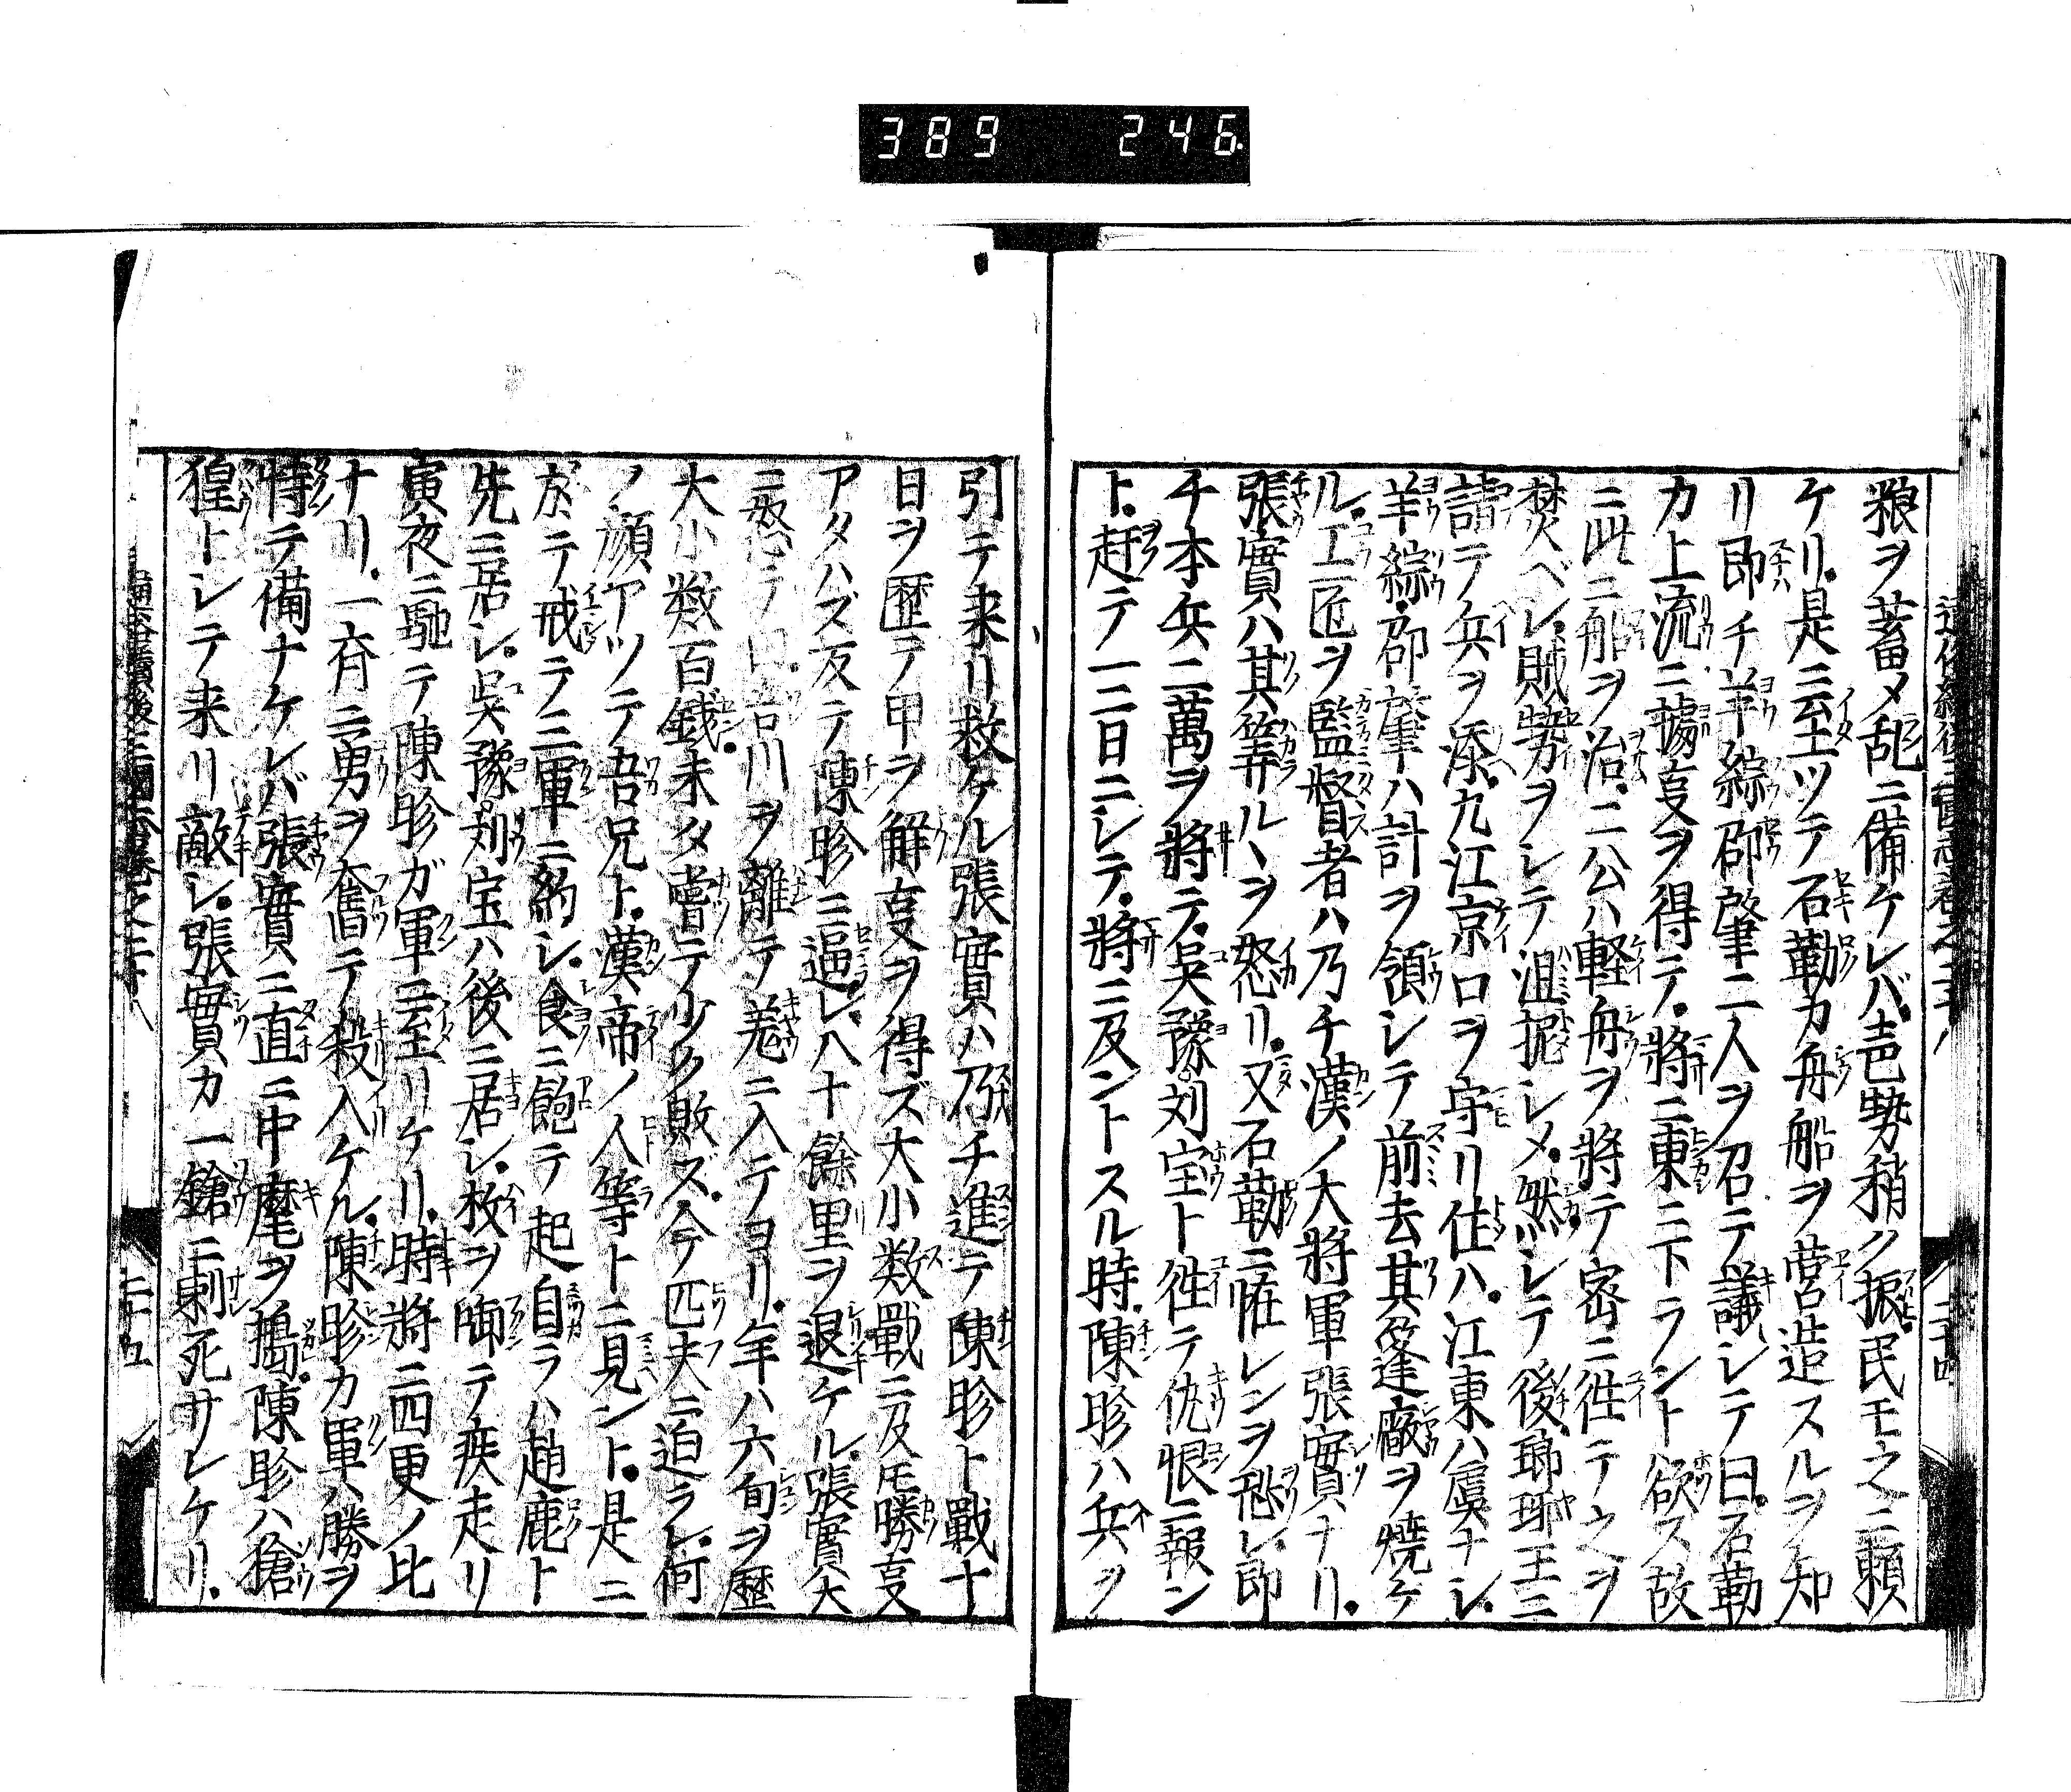 389 246
粮ヲ蓄メ乱ニ備ケレバ声勢稍ク振民モ之ニ頼
ケリ是ニ至ツテ石勒カ舟船ヲ営造スルヲ知
リ即チ羊綜郘肇二人ヲ召テ議シテ曰石勒
カ上流ニ據ヿヲ得テ將ニ東ニ下ラント欲ス故
ニ此ニ船ヲ治二公ハ軽舟ヲ將テ密ニ徃テ之ヲ
焚ベシ賊勢ヲシテ沮抳シメ然シテ後瑯琊王ニ
請テ兵ヲ添九江京口ヲ守リ住ハ江東ハ虞ナシ
羊綜郘肇ハ計ヲ領シテ前去其篷廠ヲ焼ケ
ル工匠ヲ監督者ハ乃チ漢ノ大將軍張實ナリ
張實ハ其筭ルヽヲ怒リ又石勒ニ恠レンヲ恐レ即
チ本兵二萬ヲ將テ吳豫刘宝ト徃テ仇恨ニ報ン
ト赶テ一二日ニシテ將ニ及ントスル時陳眕ハ兵ヲ
引テ来リ救ケル張實ハ乃チ進テ陳眕ト戰十
日ヲ歴テ甲ヲ解ヿヲ得ズ大小数戰ニ及𪜈勝ヿ
アタハズ反テ陳眕ニ逼レ八十餘里ヲ退ケル張實大
ニ怒テ曰吾川ヲ離テ羗ニ入テヨリ年ハ六旬ヲ歴
大小数百戦未タ嘗テ少ク敗ズ今匹夫ニ迫ラレ何
ノ顔アツテ吾兄ト漢帝ノ人等トニ見ント是ニ
於テ戒テ三軍ニ約シ食ニ飽テ起自ラハ趙鹿ト
先ニ居シ吳豫刘宝ハ後ニ居シ枚ヲ啣テ疾走リ
寅夜ニ馳テ陳眕ガ軍ニ至リケリ時將ニ四更ノ比
ナリ一齊ニ勇ヲ奮テ殺入ケル陳眕カ軍ハ勝ヲ
恃テ備ナケレバ張實ニ直ニ中麾ヲ搗陳眕ハ搶
猩トシテ来リ敵シ張實カ一鎗ニ剌死サレケリ